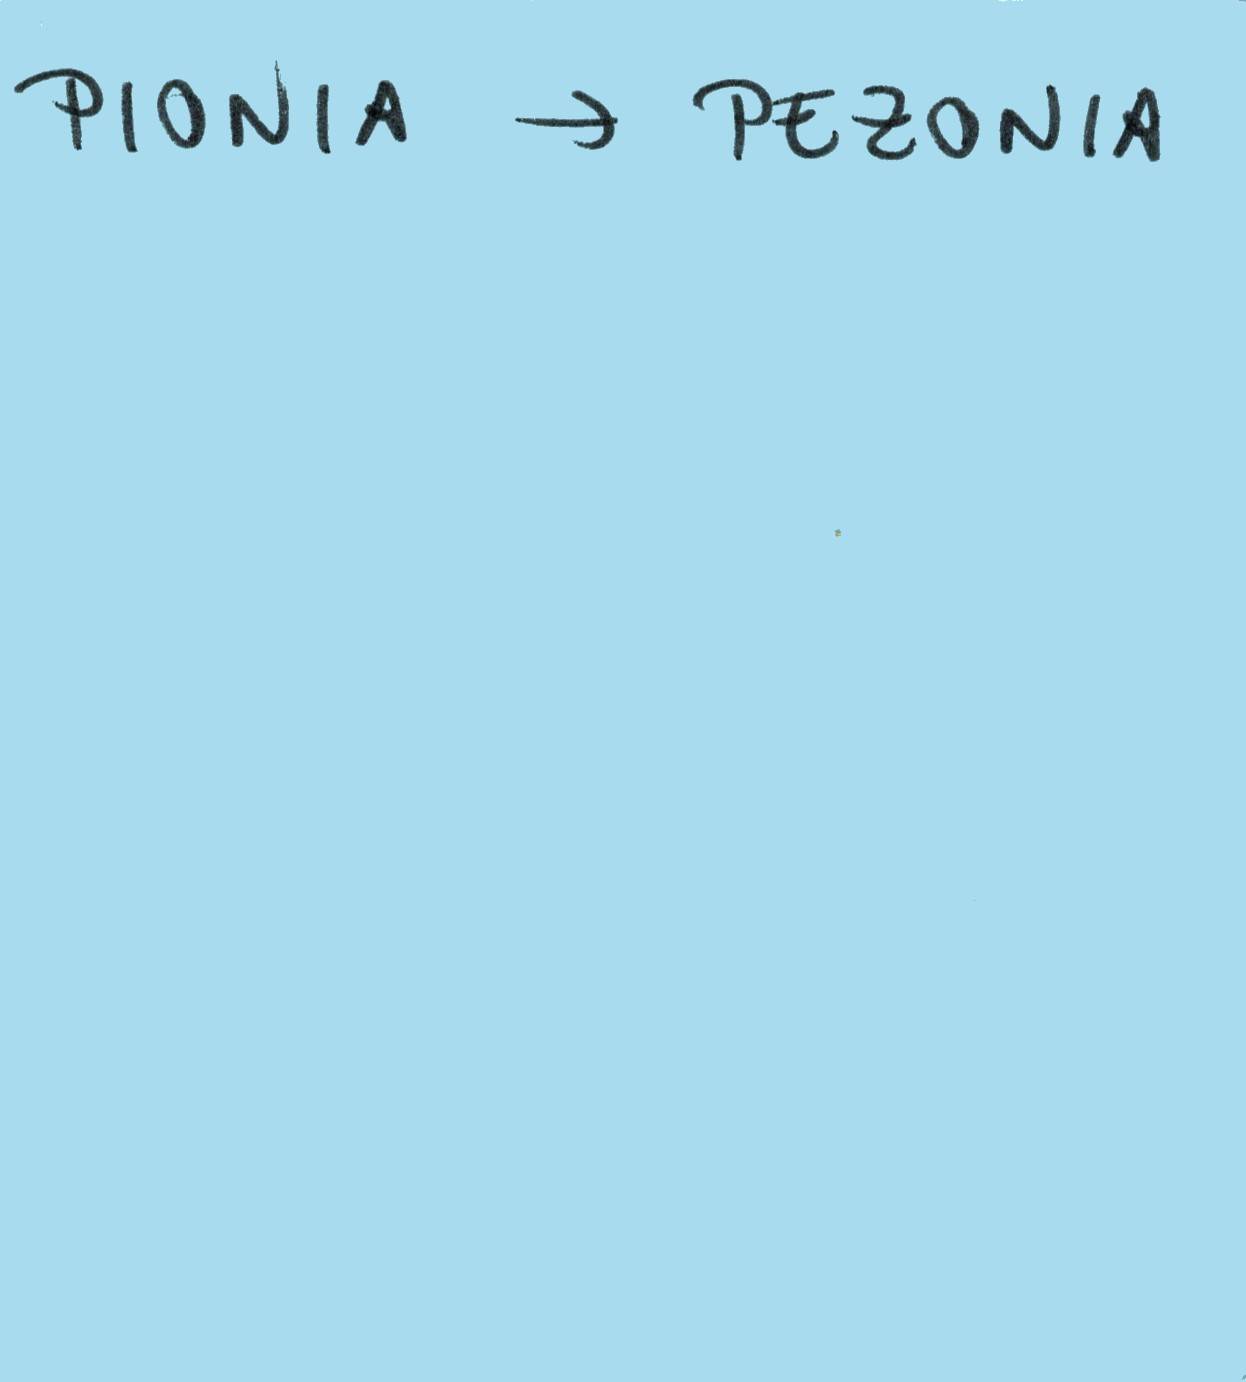 PIONIA → PEZONIA